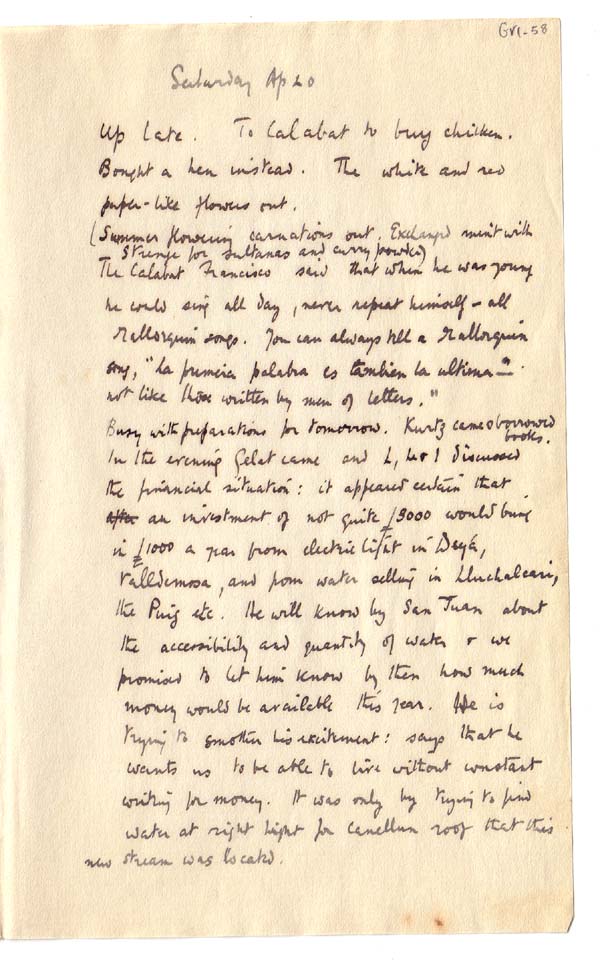 GVI-58
Saturday Ap 20
Up late. To Calabat to buy chicken.
Bought a hen instead. The white and red
paper-like flowers out.
(Summer flowering carnations out. Exchanged mint with
Strenge for sultanas and curry powder)
The Calabat Francisco said that when he was young
he could sing all day, never repeat himself - all
Mallorquin songs. You can always tell a Mallorquin
song, "la primera palabra es tambien la ultima".
not like those written by men of letters."
Busy with preparations for tomorrow. Kurtz came & borrowed
books.
In the evening Gelat came and L, he & I discussed
the financial situation: it appeared certain that
after an investment of not quite £3000 would bring
in £1000 a year from electric light in Deyá,
Valldemosa, and from water selling in Lluchalcari,
the Puig etc. He will know by San Juan about
the accessibility and quantity of water & we
promised to let him know by then how much
money would be available this year. He is
trying to smother his excitement: says that he
wants us to be able to live without constant
writing for money. It was only by trying to find
water at right hight for Canellun roof that this
new stream was located.